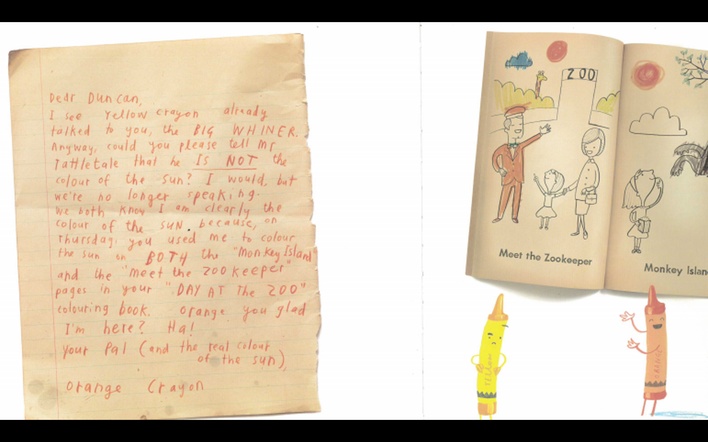 Dear Duncan,
I see Yellow crayon already
talked to you, the BIG WHINER.
Anyway, could you please tell Mr
Tattletale that he IS NOT the
colour of the sun? I would, but
we're no longer speaking.
We both know I am clearly the
colour of the sun. because, on
Thursday, you used me to colour
the sun on BOTH the "Monkey Island"
and the "meet the zookeeper"
pages in your "DAY AT THE ZOO"
colouring book. Orange you glad
I'm here? Ha!
Your Pal (and the real colour
of the sun),
orange Crayon
ZOO
Meet the Zookeeper
Monkey Islan